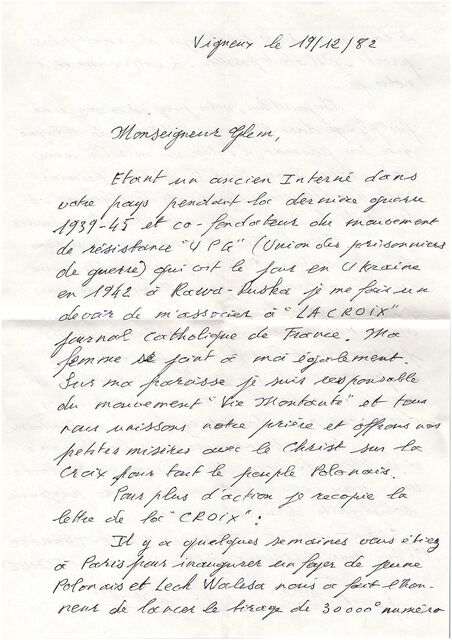 Vigneux le 19/12/82
Monseigneur Glem,
Etant un ancien Interné dans
votre pays pendant la dernière guerre
1939-45 et co-fondateur du mouvement
de résistance "UPG" (Union des prisonniers
de guerre) qui vit le jour en Ukraine
en 1942 à Rawa-Ruska je me fais un
devoir de m'associer à "LA CROIX"
journal catholique de France. Ma
femme se joint à moi également.
Sur ma paroisse je suis responsable
du mouvement "Vie Montante" et tous
nous unissons notre prière et offrons nos
petites misères avec le Christ sur la
Croix pour tout le peuple Polonais.
Pour plus d'action je recopie la
lettre de la "CROIX":
Il y a quelques semaines vous étiez
à Paris pour inaugurer un foyer de jeune
Polonais et Lech Walesa nous a fait l'hon-
neur de lancer le tirage de 30000° numéro